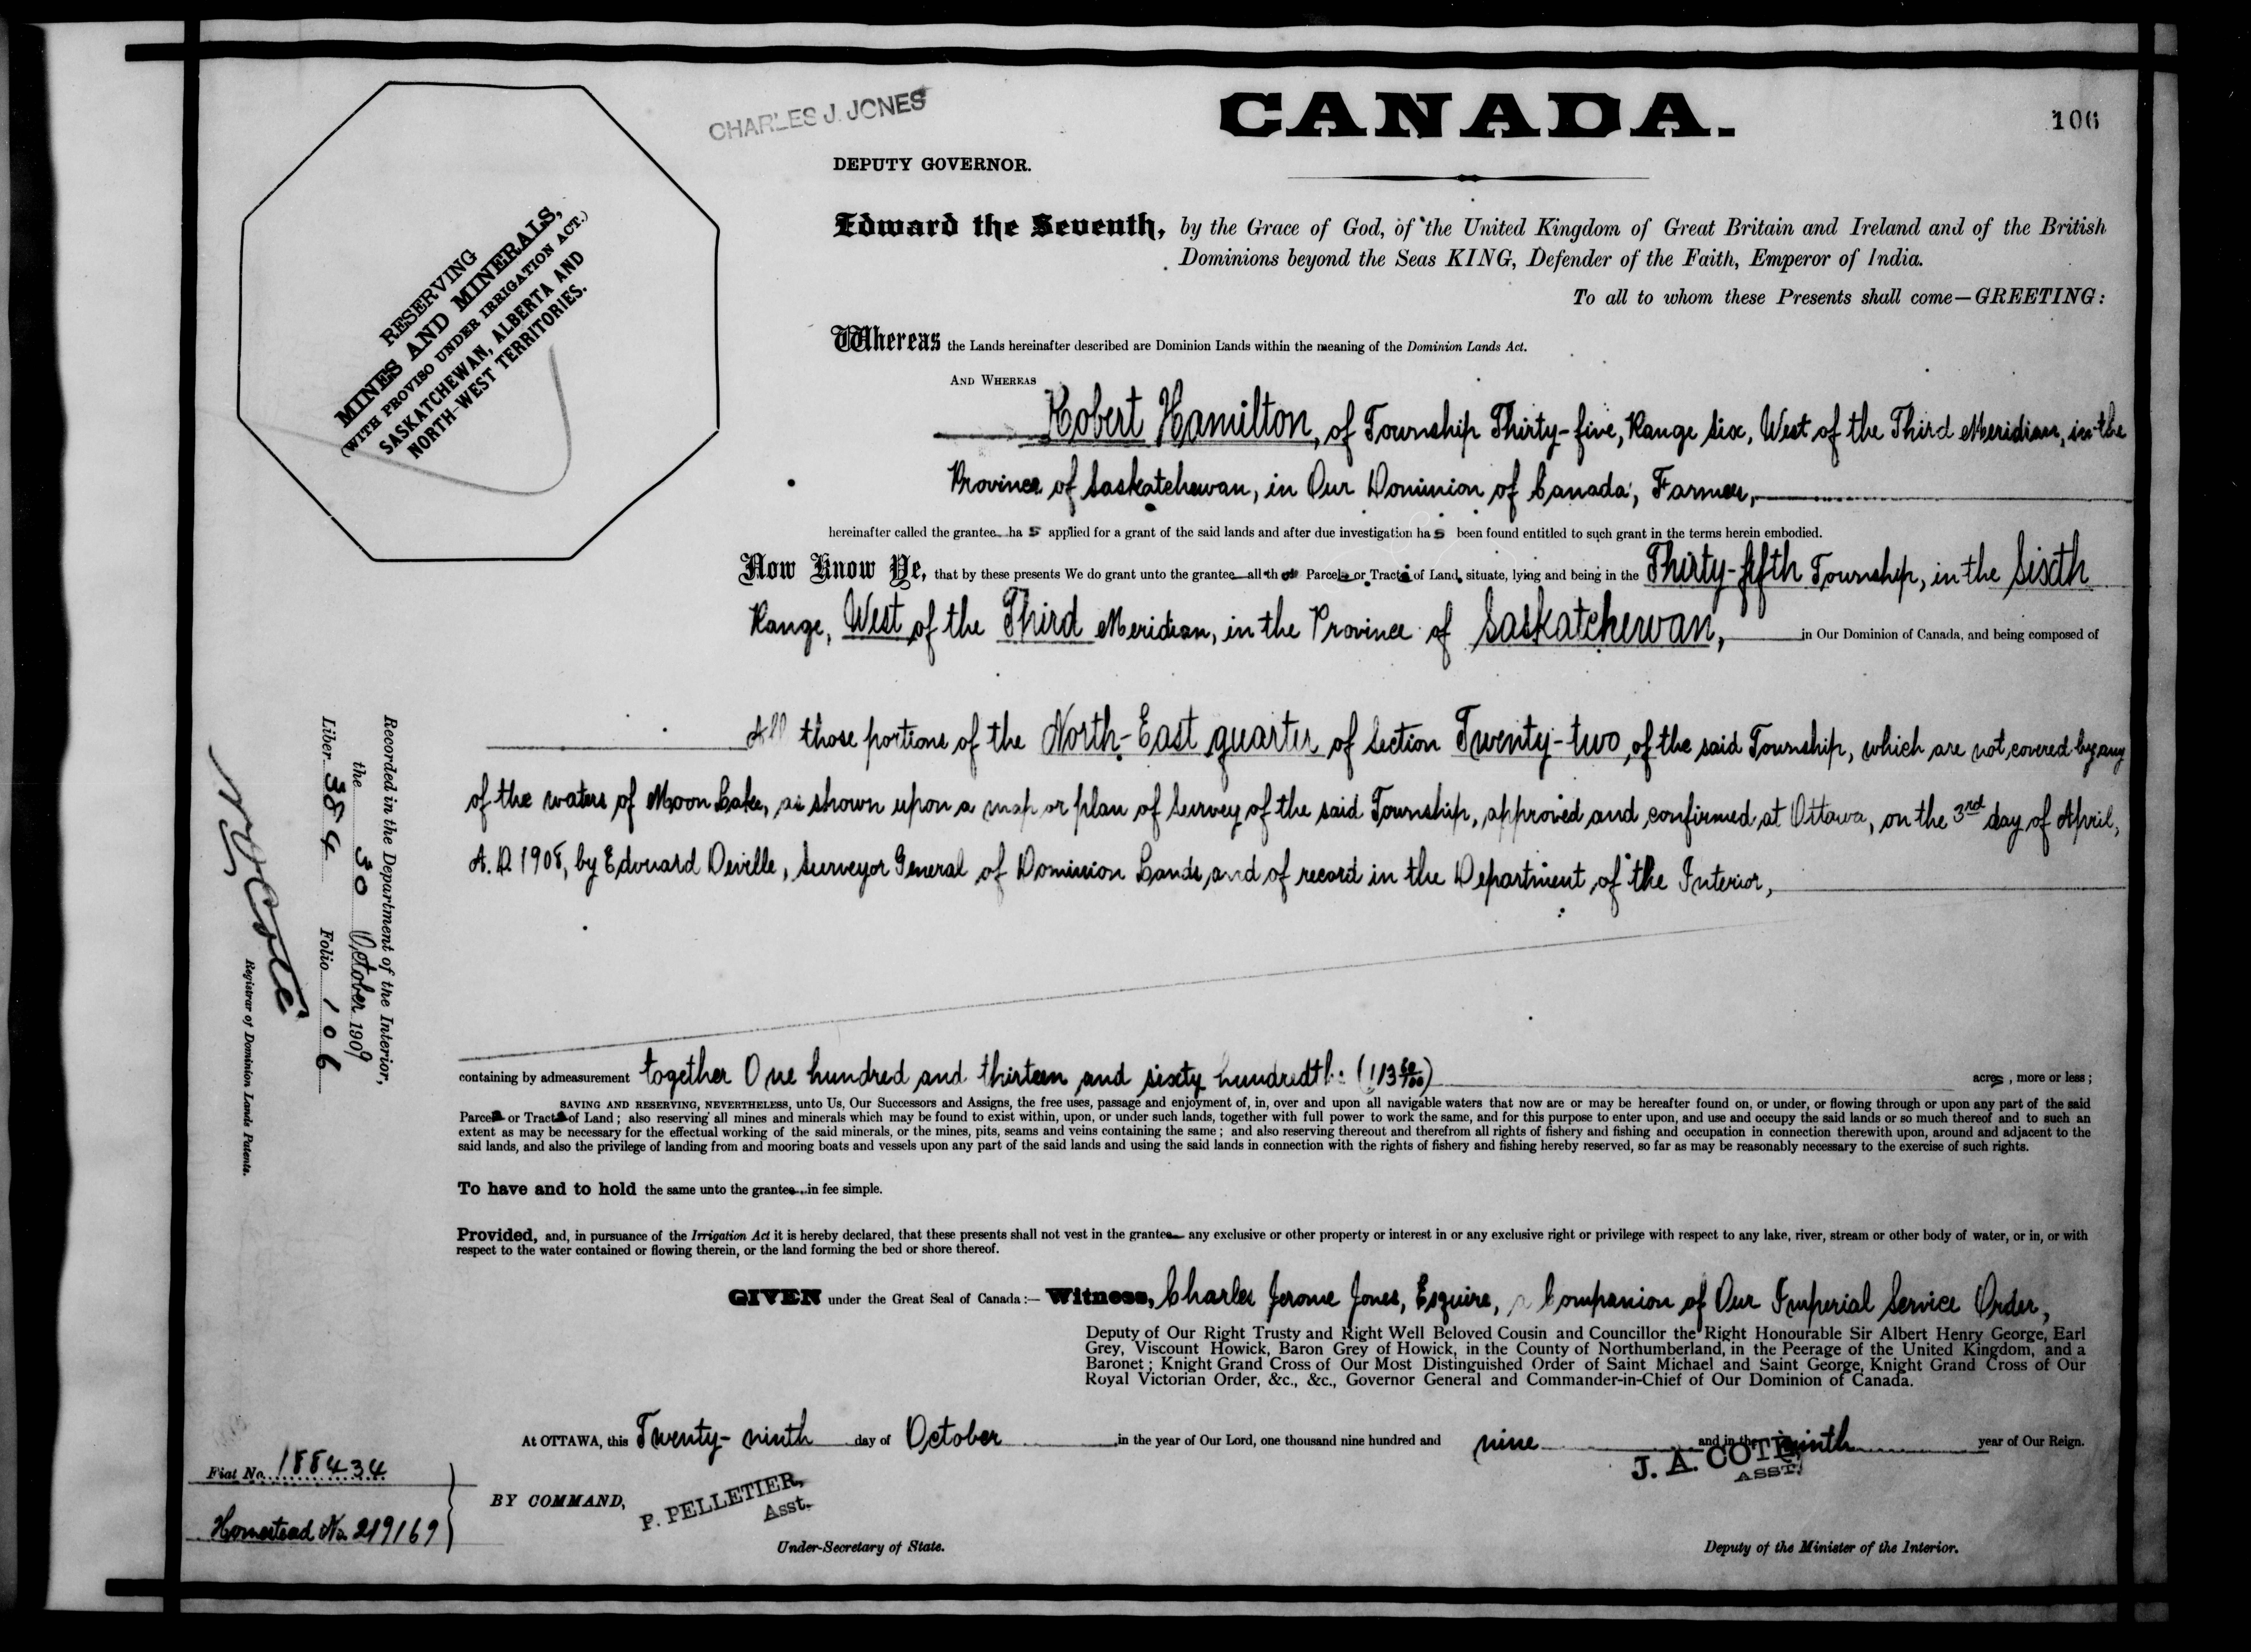 CHARLES J. JONES
CANADA.
106
DEPUTY GOVERNOR.
RESERVING
MINES AND MINERALS,
(WITH PROVISO UNDER IRRIGATION ACT.)
SASKATCHEWAN, ALBERTA AND
NORTH-WEST TERRITORIES.
Edward the Seventh, by the Grace of God, of the United Kingdom of Great Britain and Ireland and of the British
Dominions beyond the Seas KING, Defender of the Faith, Emperor of India.
To all to whom these Presents shall come—GREETING:
Whereas the Lands hereinafter described are Dominion Lands within the meaning of the Dominion Lands Act.
AND WHEREAS
Robert Hamilton, of Township Thirty-five, Range Six, West of the Third Meridian, in the
Province of Saskatchewan, in Our Dominion of Canada, Farmer,
hereinafter called the grantee has applied for a grant of the said lands and after due investigation has been found entitled to such grant in the terms herein embodied.
Now Know Ye, that by these presents We do grant unto the grantee all those Parcels or Tracts of Land, situate, lying and being in the Thirty-fifth Township, in the Sixth
Range, West of the Third Meridian, in the Province of Saskatchewan, in Our Dominion of Canada, and being composed of
All those portions of the North-East quarter of Section Twenty-two, of the said Township, which are not covered by any
of the waters of Moon Lake, as shown upon a map or plan of Survey of the said Township, approved and confirmed at Ottawa, on the 3rd day of April,
A.D. 1908, by Edouard Deville, Surveyor General of Dominion Lands, and of record in the Department of the Interior,
containing by admeasurement together One hundred and thirteen and sixty hundredths (113 60/100) acres, more or less;
SAVING AND RESERVING, NEVERTHELESS, unto Us, Our Successors and Assigns, the free uses, passage and enjoyment of, in, over and upon all navigable waters that now are or may be hereafter found on, or under, or flowing through or upon any part of the said
Parcels or Tracts of Land; also reserving all mines and minerals which may be found to exist within, upon, or under such lands, together with full power to work the same, and for this purpose to enter upon, and use and occupy the said lands or so much thereof and to such an
extent as may be necessary for the effectual working of the said minerals, or the mines, pits, seams and veins containing the same; and also reserving thereout and therefrom all rights of fishery and fishing and occupation in connection therewith upon, around and adjacent to the
said lands, and also the privilege of landing from and mooring boats and vessels upon any part of the said lands and using the said lands in connection with the rights of fishery and fishing hereby reserved, so far as may be reasonably necessary to the exercise of such rights.
To have and to hold the same unto the grantee in fee simple.
Provided, and, in pursuance of the Irrigation Act it is hereby declared, that these presents shall not vest in the grantee any exclusive or other property or interest in or any exclusive right or privilege with respect to any lake, river, stream or other body of water, or in, or with
respect to the water contained or flowing therein, or the land forming the bed or shore thereof.
GIVEN under the Great Seal of Canada:— Witness, Charles Jerome Jones, Esquire, a Companion of Our Imperial Service Order,
Deputy of Our Right Trusty and Right Well Beloved Cousin and Councillor the Right Honourable Sir Albert Henry George, Earl
Grey, Viscount Howick, Baron Grey of Howick, in the County of Northumberland, in the Peerage of the United Kingdom, and a
Baronet; Knight Grand Cross of Our Most Distinguished Order of Saint Michael and Saint George, Knight Grand Cross of Our
Royal Victorian Order, &c., &c., Governor General and Commander-in-Chief of Our Dominion of Canada.
At OTTAWA, this Twenty-ninth day of October in the year of Our Lord, one thousand nine hundred and nine and in the ninth year of Our Reign.
J. A. COTE,
ASST.
BY COMMAND,
P. PELLETIER,
Asst.
Under-Secretary of State.
Deputy of the Minister of the Interior.
Fiat No. 188434
Homestead No. 219169
Recorded in the Department of the Interior,
the 30 October 1909
Liber 384 Folio 106
N O Coté
Registrar of Dominion Lands Patents.